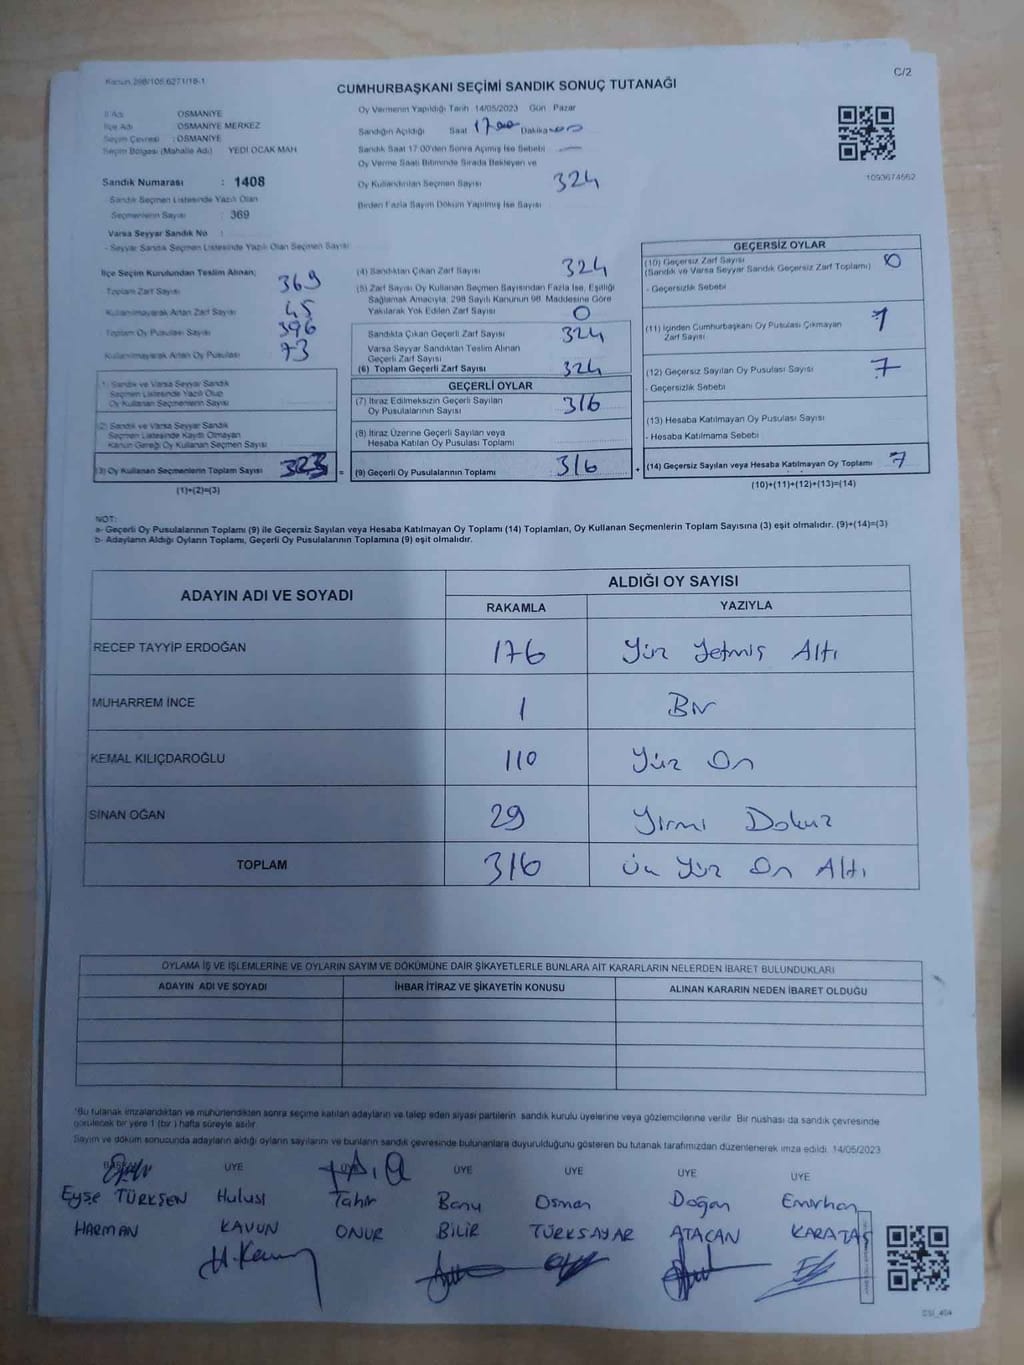 Kanun 298/105 6271/18-1
C/2
CUMHURBAŞKANI SEÇİMİ SANDIK SONUÇ TUTANAĞI
İl Adı : OSMANİYE
İlçe Adı : OSMANİYE MERKEZ
Seçim Çevresi : OSMANİYE
Seçim Bölgesi (Mahalle Adı) : YEDİ OCAK MAH
Sandık Numarası : 1408
Sandık Seçmen Listesinde Yazılı Olan
Seçmenlerin Sayısı : 369
Varsa Seyyar Sandık No :
- Seyyar Sandık Seçmen Listesinde Yazılı Olan Seçmen Sayısı
Oy Vermenin Yapıldığı Tarih 14/05/2023 Gün Pazar
Sandığın Açıldığı Saat 17 00 Dakika 00
Sandık Saat 17.00'den Sonra Açılmış İse Sebebi —
Oy Verme Saati Bitiminde Sırada Bekleyen ve
Oy Kullandırılan Seçmen Sayısı 324
Birden Fazla Sayım Döküm Yapılmış İse Sayısı
1093674562
İlçe Seçim Kurulundan Teslim Alınan;
Toplam Zarf Sayısı 369
Kullanılmayarak Artan Zarf Sayısı 45
Toplam Oy Pusulası Sayısı 396
Kullanılmayarak Artan Oy Pusulası 73
1) Sandık ve Varsa Seyyar Sandık
Seçmen Listesinde Yazılı Olup
Oy Kullanan Seçmenlerin Sayısı
(2) Sandık ve Varsa Seyyar Sandık
Seçmen Listesinde Kaydı Olmayan
Kanun Gereği Oy Kullanan Seçmen Sayısı
(3) Oy Kullanan Seçmenlerin Toplam Sayısı 323 =
(1)+(2)=(3)
(4) Sandıktan Çıkan Zarf Sayısı 324
(5) Zarf Sayısı Oy Kullanan Seçmen Sayısından Fazla İse, Eşitliği
Sağlamak Amacıyla, 298 Sayılı Kanunun 98. Maddesine Göre
Yakılarak Yok Edilen Zarf Sayısı 0
Sandıkta Çıkan Geçerli Zarf Sayısı 324
Varsa Seyyar Sandıktan Teslim Alınan
Geçerli Zarf Sayısı
(6) Toplam Geçerli Zarf Sayısı 324
GEÇERLİ OYLAR
(7) İtiraz Edilmeksizin Geçerli Sayılan
Oy Pusulalarının Sayısı 316
(8) İtiraz Üzerine Geçerli Sayılan veya
Hesaba Katılan Oy Pusulası Toplamı
(9) Geçerli Oy Pusulalarının Toplamı 316 +
GEÇERSİZ OYLAR
(10) Geçersiz Zarf Sayısı 0
(Sandık ve Varsa Seyyar Sandık Geçersiz Zarf Toplamı)
- Geçersizlik Sebebi
(11) İçinden Cumhurbaşkanı Oy Pusulası Çıkmayan
Zarf Sayısı 1
(12) Geçersiz Sayılan Oy Pusulası Sayısı 7
- Geçersizlik Sebebi
(13) Hesaba Katılmayan Oy Pusulası Sayısı
- Hesaba Katılmama Sebebi
(14) Geçersiz Sayılan veya Hesaba Katılmayan Oy Toplamı 7
(10)+(11)+(12)+(13)=(14)
NOT:
a- Geçerli Oy Pusulalarının Toplamı (9) ile Geçersiz Sayılan veya Hesaba Katılmayan Oy Toplamı (14) Toplamları, Oy Kullanan Seçmenlerin Toplam Sayısına (3) eşit olmalıdır. (9)+(14)=(3)
b- Adayların Aldığı Oyların Toplamı, Geçerli Oy Pusulalarının Toplamına (9) eşit olmalıdır.
ADAYIN ADI VE SOYADI
ALDIĞI OY SAYISI
RAKAMLA YAZIYLA
RECEP TAYYİP ERDOĞAN 176 Yüz Yetmiş Altı
MUHARREM İNCE 1 Bir
KEMAL KILIÇDAROĞLU 110 Yüz On
SİNAN OĞAN 29 Yirmi Dokuz
TOPLAM 316 Üç Yüz On Altı
OYLAMA İŞ VE İŞLEMLERİNE VE OYLARIN SAYIM VE DÖKÜMÜNE DAİR ŞİKAYETLERLE BUNLARA AİT KARARLARIN NELERDEN İBARET BULUNDUKLARI
ADAYIN ADI VE SOYADI İHBAR İTİRAZ VE ŞİKAYETİN KONUSU ALINAN KARARIN NEDEN İBARET OLDUĞU
*Bu tutanak imzalandıktan ve mühürlendikten sonra seçime katılan adayların ve talep eden siyasi partilerin sandık kurulu üyelerine veya gözlemcilerine verilir. Bir nüshası da sandık çevresinde
görülecek bir yere 1 (bir) hafta süreyle asılır.
Sayım ve döküm sonucunda adayların aldığı oyların sayılarını ve bunların sandık çevresinde bulunanlara duyurulduğunu gösteren bu tutanak tarafımızdan düzenlenerek imza edildi. 14/05/2023
ÜYE ÜYE ÜYE ÜYE ÜYE
Eyşe TÜRKSEN Hulusi Tahir Banu Osman Doğan Emirhan
HARMAN KAVUN ONUR BİLİR TÜRKSAYAR ATACAN KARATAŞ
H.Kavun